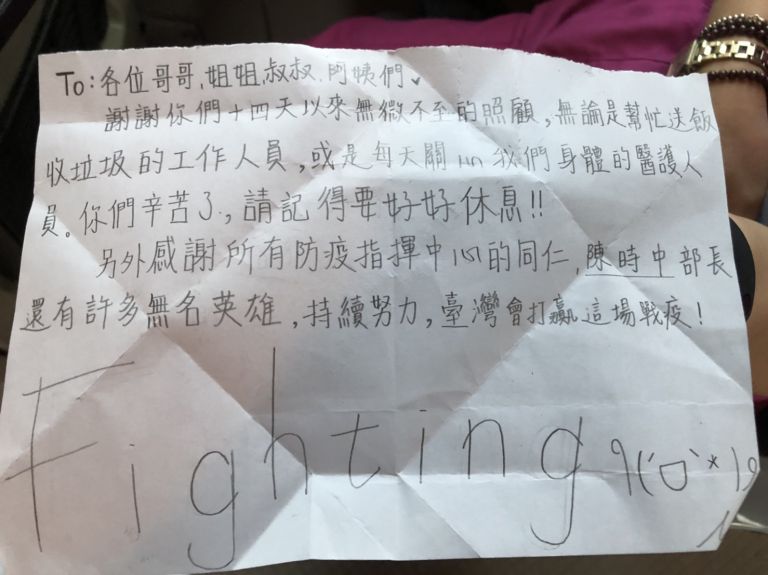 To：各位哥哥、姐姐叔叔、阿姨們
謝謝你們十四天以來無微不至的照顧，無論是幫忙送飯
收垃圾的工作人員，或是每天關心我們身體的醫護人
員。你們辛苦了，請記得要好好休息!!
另外感謝所有防疫指揮中心的同仁、陳時中部長
還有許多無名英雄，持續努力，臺灣會打贏這場戰疫！
Fighting ٩(ˊㅁˋ*)و